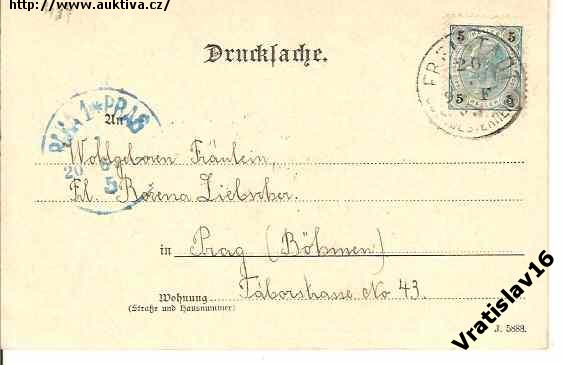 http://www.auktiva.cz/
Drucksache.
5 5
5 5
20
PRAG
An
20 6
5
Wohlgeboren Fräulein,
Frl. Bozena Zielscher.
in Prag (Böhmen)
Táborstrasse No 43.
Wohnung
(Straße und Hausnummer)
J. 5888.
Vratislav16